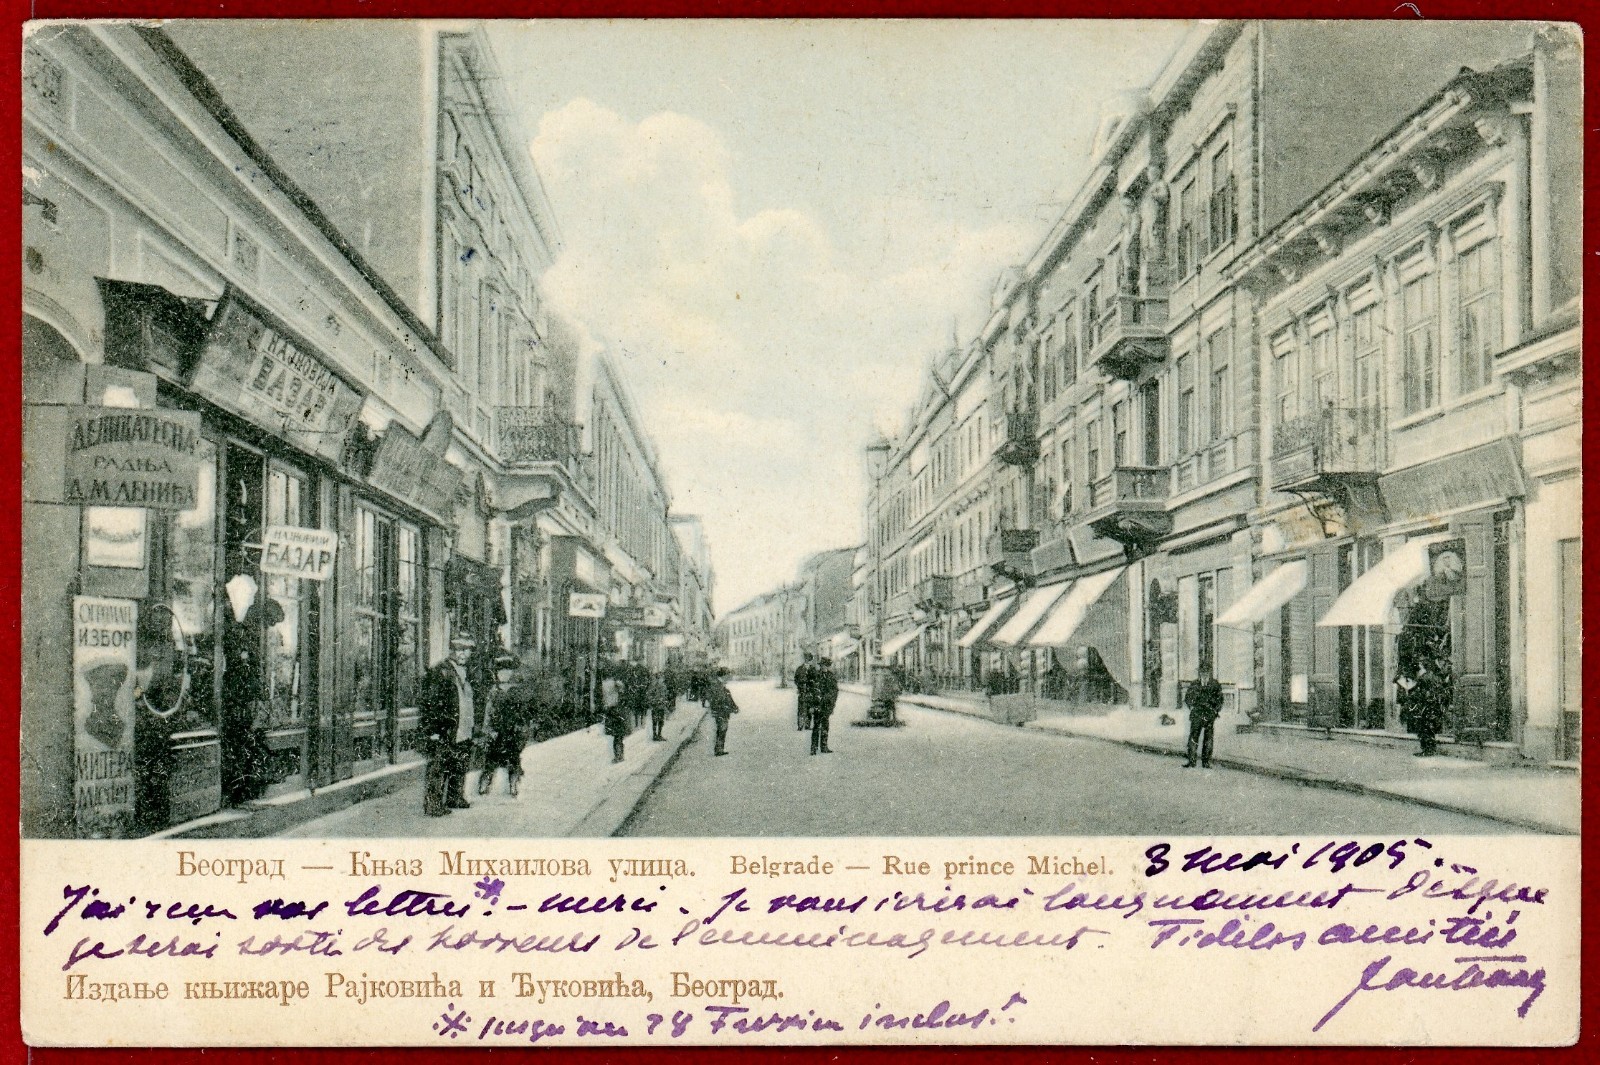 НАЈНОВИЈИ
БАЗАР
ДЕЛИКАТЕСНА
РАДЊА
Д.М.ЛЕНИЋА
НАЈНОВИЈИ
БАЗАР
ИЗБОР
МИДЕРА
Mieder
Београд — Књаз Михаилова улица. Belgrade — Rue prince Michel. 3 mai 1905.
J'ai reçu vos lettres* — merci. Je vous écrirai longuement dès que
je serai sorti des horreurs de l'emménagement. Fidèles amitiés
Издање књижаре Рајковића и Ђуковића, Београд.
* jusqu'au 28 Février inclus.